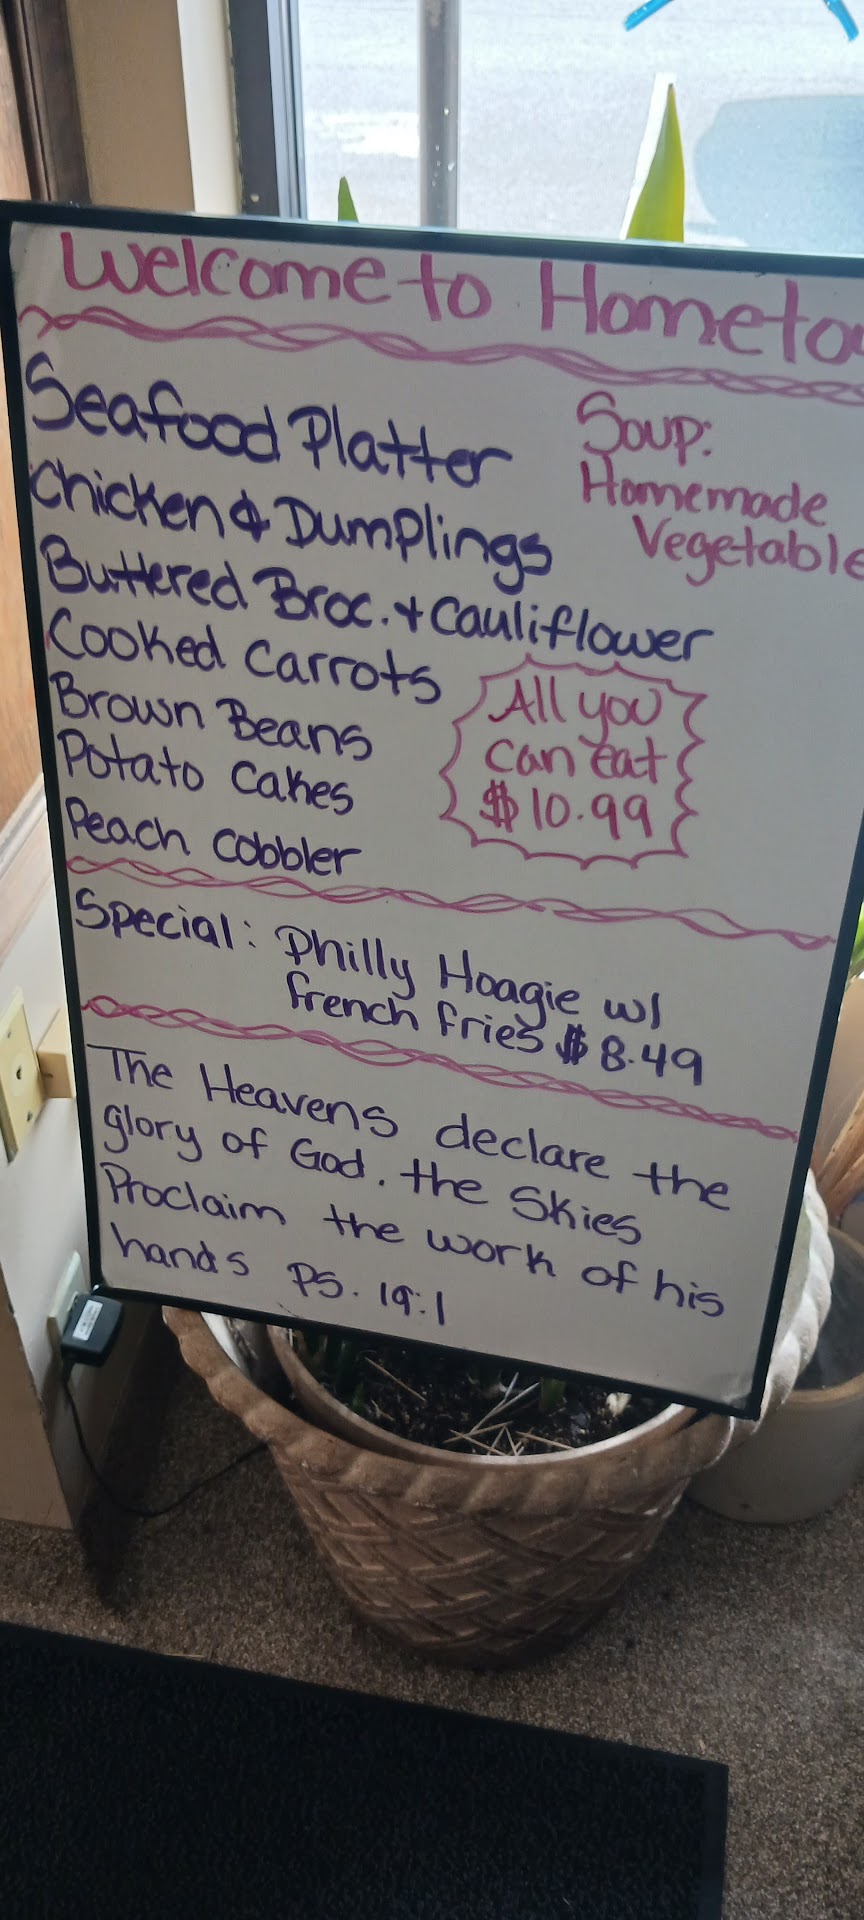 Welcome to Hometo
Seafood Platter
Chicken & Dumplings
Buttered Broc. + Cauliflower
Cooked Carrots
Brown Beans
Potato Cakes
Peach Cobbler
Soup:
Homemade
Vegetable
All you
can eat
$10.99
Special: Philly Hoagie w/
french fries $8.49
The Heavens declare the
glory of God. the skies
Proclaim the work of his
hands PS. 19:1